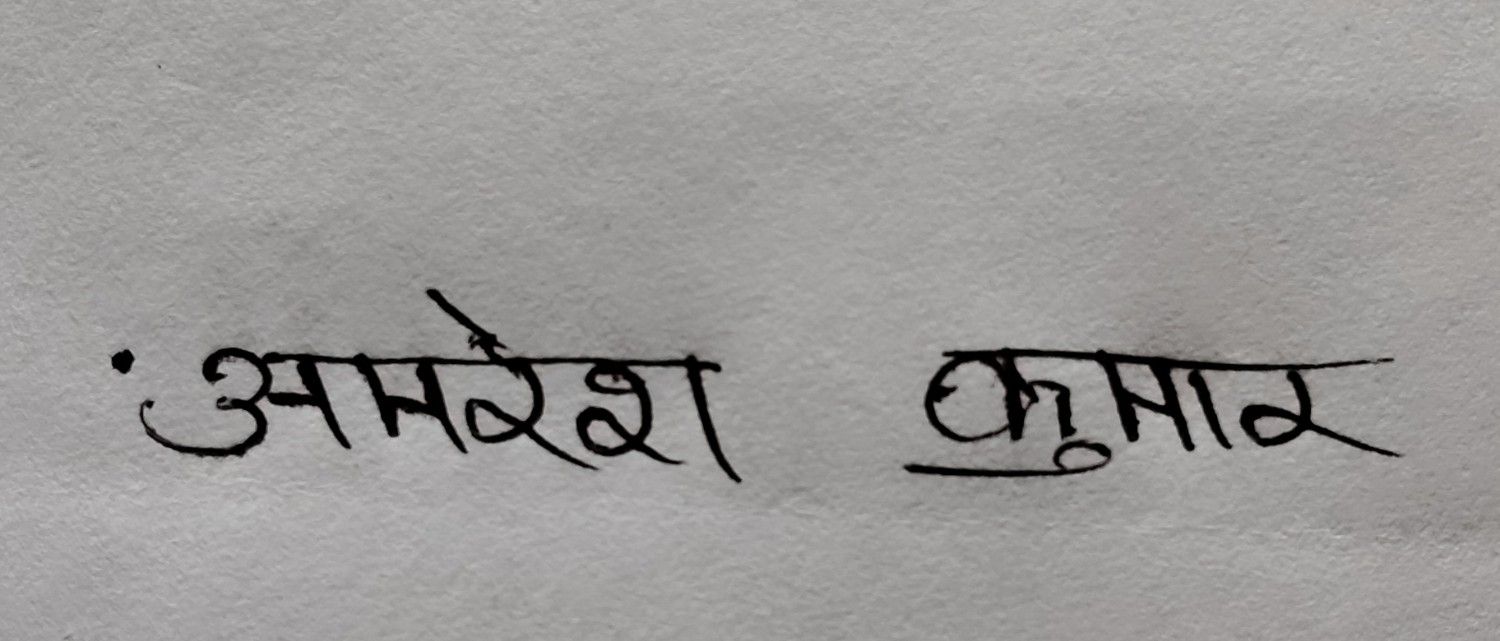 अमरेश कुमार